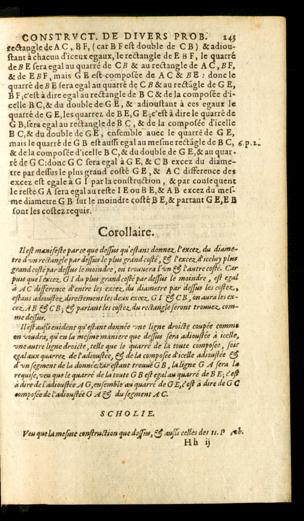 CONSTRVCT. DE DIVERS PROB. 243
rectangle de AC, BF, (car BF est double de CB) & adiou-
stant à chacun d'iceux egaux, le rectangle de EBF, le quarré
de BE sera egal au quarré de CB & au rectangle de AC, BF,
& de EBF, mais GE est composée de AC & BE: donc le
quarré de BE sera egal au quarré de CB & au rectãgle de GE,
BF, c'est à dire egal au rectangle de BC & de la composée d'i-
celle BC, & du double de GE, & adioustant à ces egaux le
quarré de GE, les quarrez de BE, GE, c'est à dire le quarré de
GB, sera egal au rectangle de BC, & de la composée d'icelle
BC, & du double de GE, ensemble auec le quarré de GE,
mais le quarré de GB est aussi egal au mesme rectangle de BC, 6.p.2.
& de la composée d'icelle BC, & du double de GE, & au quar-
ré de GC: donc GC sera egal à GE, & CB excez du diame-
tre par dessus le plus grand costé GE, & AC difference des
excez est egale à GI par la construction, & par consequent
le reste GA sera egal au reste IE ou BE, & AB excez du mes-
me diametre GB sur le moindre costé BE, & partant GE, EB
sont les costez requis.
Corollaire.
Il est manifeste par ce que dessus qu'estans donnez, l'excez du diame-
tre d'vn rectangle par dessus le plus grand costé, & l'excez d'iceluy plus
grand costé par dessus le moindre, on trouuera l'vn & l'autre costé. Car
pour que l'excez GI du plus grand costé par dessus le moindre, est egal
à AC difference d'entre les excez du diametre par dessus les costez,
estans adioustez directement les deux excez GI & CB, on aura les ex-
cez AB & CB; & partant les costez du rectangle seront trouuez com-
me dessus.
Il est aussi euident qu'estant donnée vne ligne droicte coupée comme
on voudra, qu'en la mesme maniere que dessus sera adioustée à icelle,
vne autre ligne droicte, telle que le quarré de la toute composée, soit
egal aux quarrez de l'adioustée, & de la composée d'icelle adioustée &
d'vn segment de la donnée: car estant trouué GB, la ligne GA sera la
requise, veu que le quarré de la toute GB est egal au quarré de BE, c'est
à dire de l'adioustée AG, ensemble au quarré de GE, c'est à dire de GC
composée de l'adioustée GA & du segment AC.
SCHOLIE.
Veu que la mesme construction que dessus, & aussi celles des 11. P ob.
Hh ij